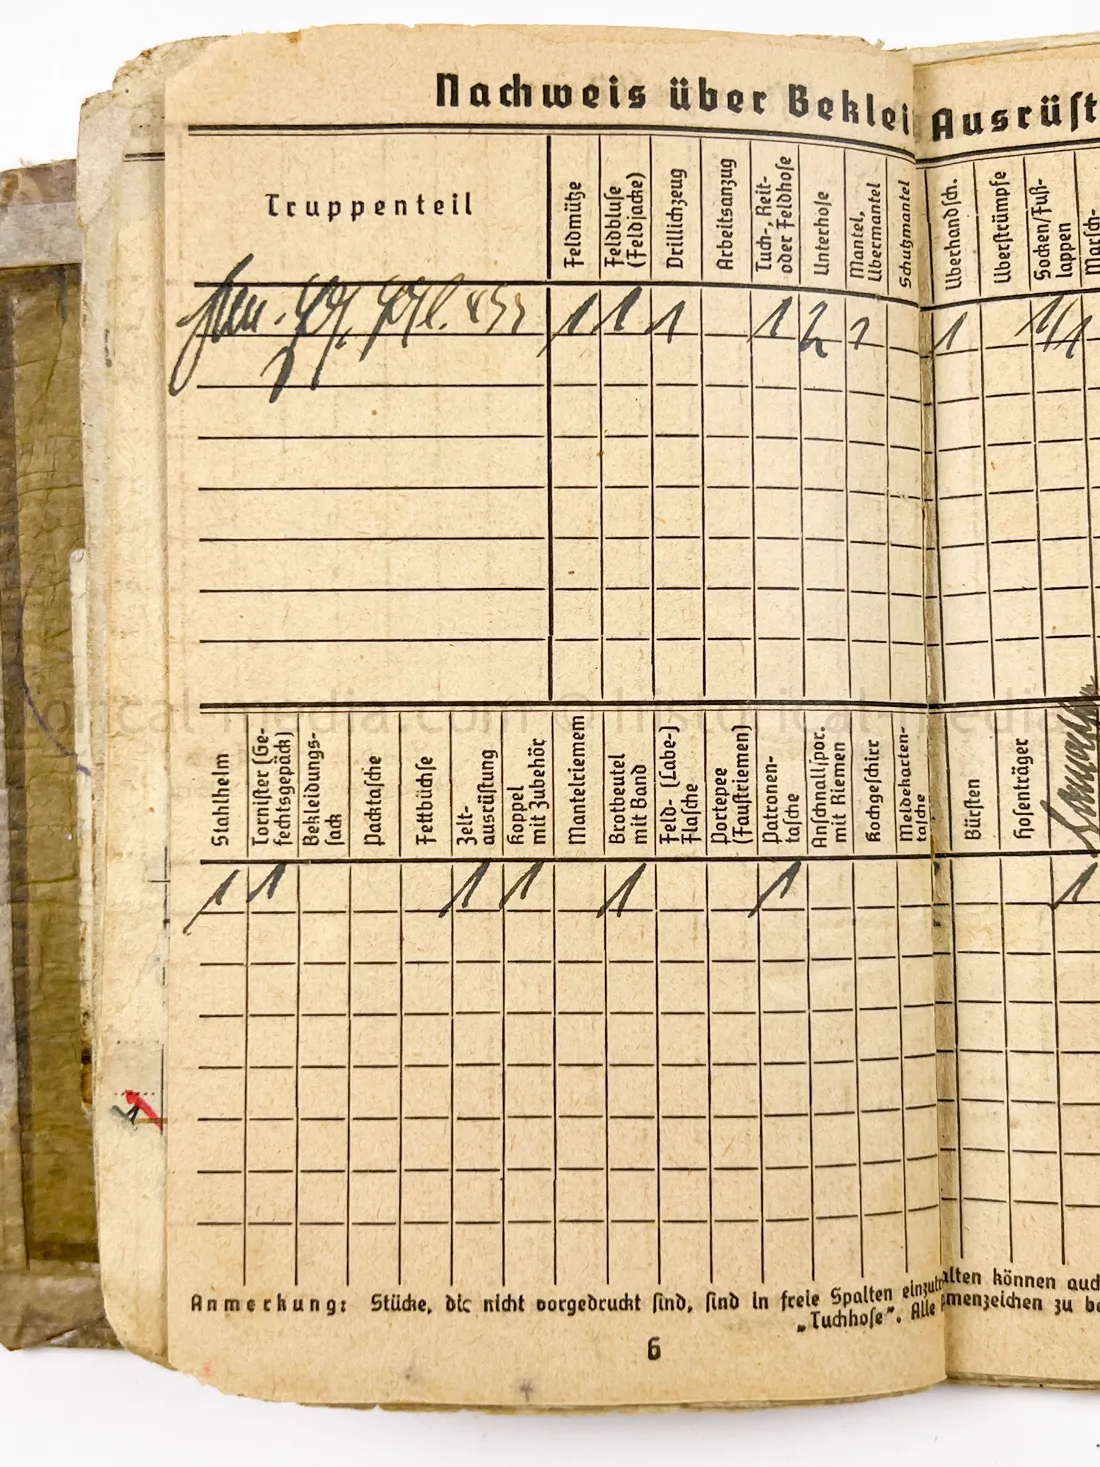 Nachweis über Beklei
Ausrüst
Truppenteil
Feldmütze
Feldbluse
(Feldjacke)
Drillichzeug
Arbeitsanzug
Tuch-, Reit-
oder Feldhose
Unterhose
Mantel,
Übermantel
Schutzmantel
Überhandsch.
Überstrümpfe
Socken/Fuß-
lappen
Marsch-
1 1 1 1 2 1 1/1
Stahlhelm
Tornister (Ge-
fechtsgepäck)
Bekleidungs-
sack
Packtasche
Fettbüchse
Zelt-
ausrüstung
Koppel
mit Zubehör
Mantelriemem
Brotbeutel
mit Band
Feld- (Labe-)
Flasche
Portepee
(Faustriemen)
Patronen-
tasche
Anschnallspor.
mit Riemen
Kochgeschirr
Meldekarten-
tasche
Bürsten
Hosenträger
1 1 1 1 1 1 1
Anmerkung: Stücke, die nicht vorgedruckt sind, sind in freie Spalten einzutr
„Tuchhose”. Alle
alten können auch
menzeichen zu be
6
historical-media.com © historical-media